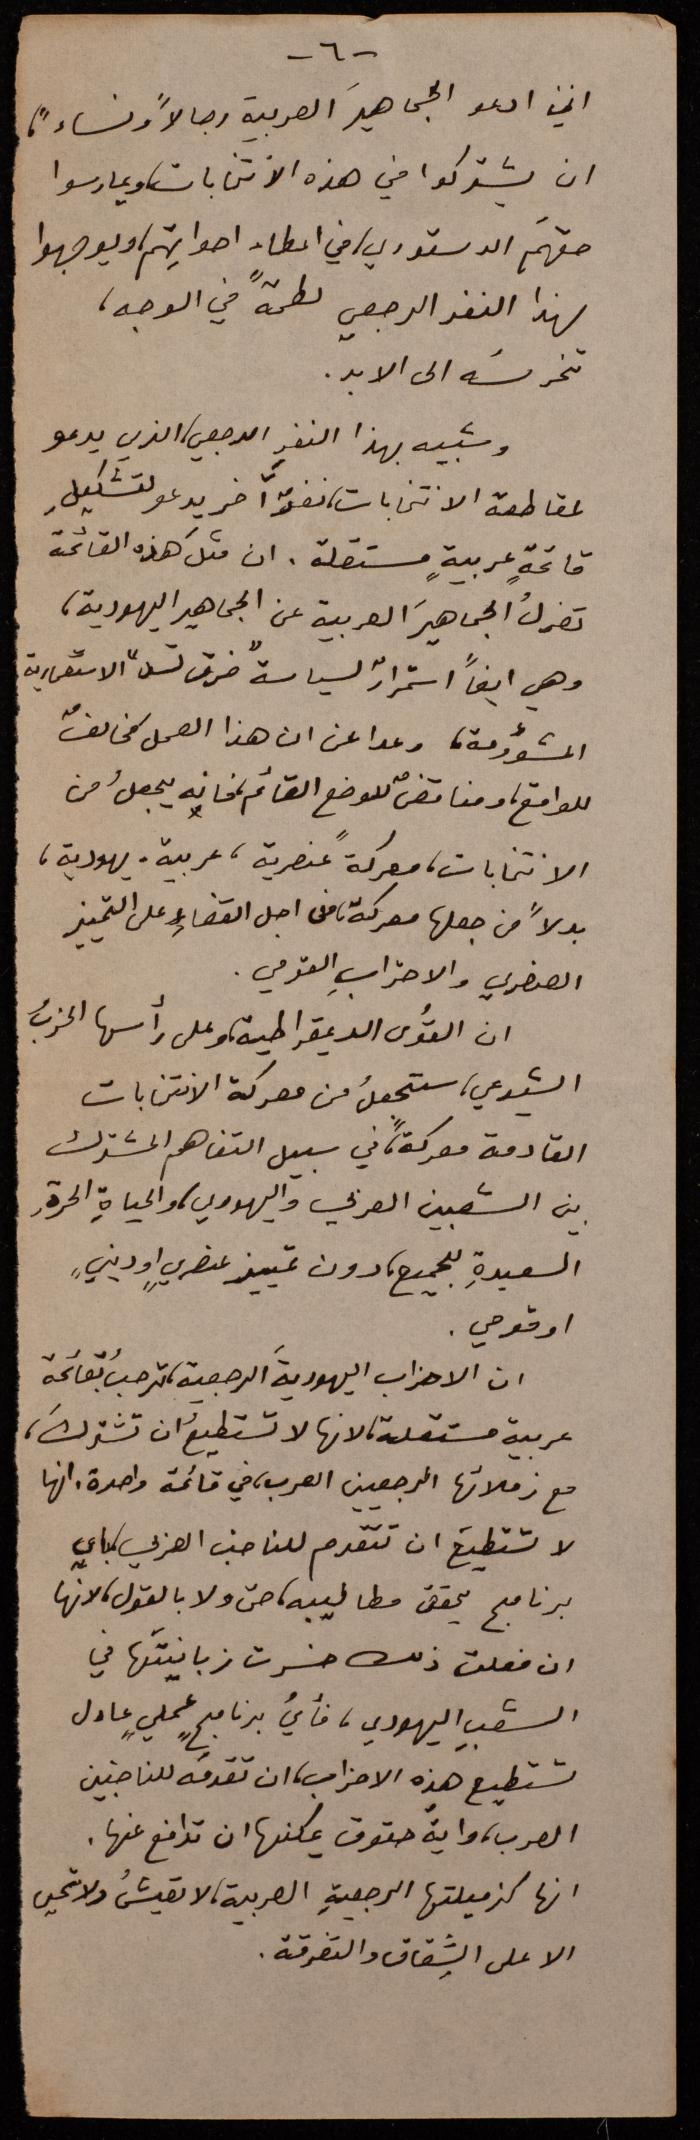 -٦-
اني ادعو الجماهيرَ العربية رجالاً ونساء"،
ان يشتركوا في هذه الانتخابات، ويمارسوا
حقهَم الدستوري، في اعطاء اصواتِهم، ويوجهوا
لهذا النفر الرجعي لطمةً في الوجه،
تخرسَه الى الابد.
وشبيه بهذا النفرِ الرجعي، الذي يدعو
لمقاطعة الانتخابات، نفرٌ آخر يدعو لتشكيلِ
قائمةٍ عربيةٍ مستقلة. ان مثلَ هذه القائمة
تعزلُ الجماهيرَ العربية عن الجماهير اليهودية،
وهي ايضاً استمرارٌ لسياسة "فرق تسد" الاستعمارية
المشؤومة، وعدا عن ان هذا العمل مخالفٌ
للواقع، ومناقضٌ للوضع القائم، فانه يجعلُ من
الانتخابات، معركةً عنصرية، عربية - يهودية،
بدلاً من جعلها معركة، من اجل القضاءِ على التمييز
العنصري والاحترابِ القومي.
ان القوُى الديمقراطية، وعلى رأسها الحزبُ
الشيوعي، ستجعلُ من معركة الانتخابات
القادمة معركةً، في سبيل التفاهم المشترك
بين الشعبين العربي واليهودي، والحياةِ الحرةِ
السعيدةِ للجميع، دون تمييز عنصريٍ او دينيٍ
او قومي.
ان الاحزاب اليهوديةَ الرجعية، ترحبُ بقائمة
عربية مستقلة، لانها لا تستطيعُ ان تشتركَ،
مع زملائها الرجعيين العرب، في قائمة واحدة. انها
لا تستطيعَ ان تتقدم للناخب العربي، باي
برنامج يحقق مطاليبه، حتى ولا بالقول، لانها
ان فعلت ذلك خسرت زبانيتَها في
الشعبِ اليهودي، فأيُ برنامجٍ عمليٍ عادل
تستطيع هذه الاحزاب، ان تقدمَه للناخبين
العرب، وايةُ حقوق يمكنها ان تدافع عنها.
انها كزميلتها الرجعيةِ العربية، لا تعيشُ ولا تحيى
الا على الشِقاق والتفرقة.